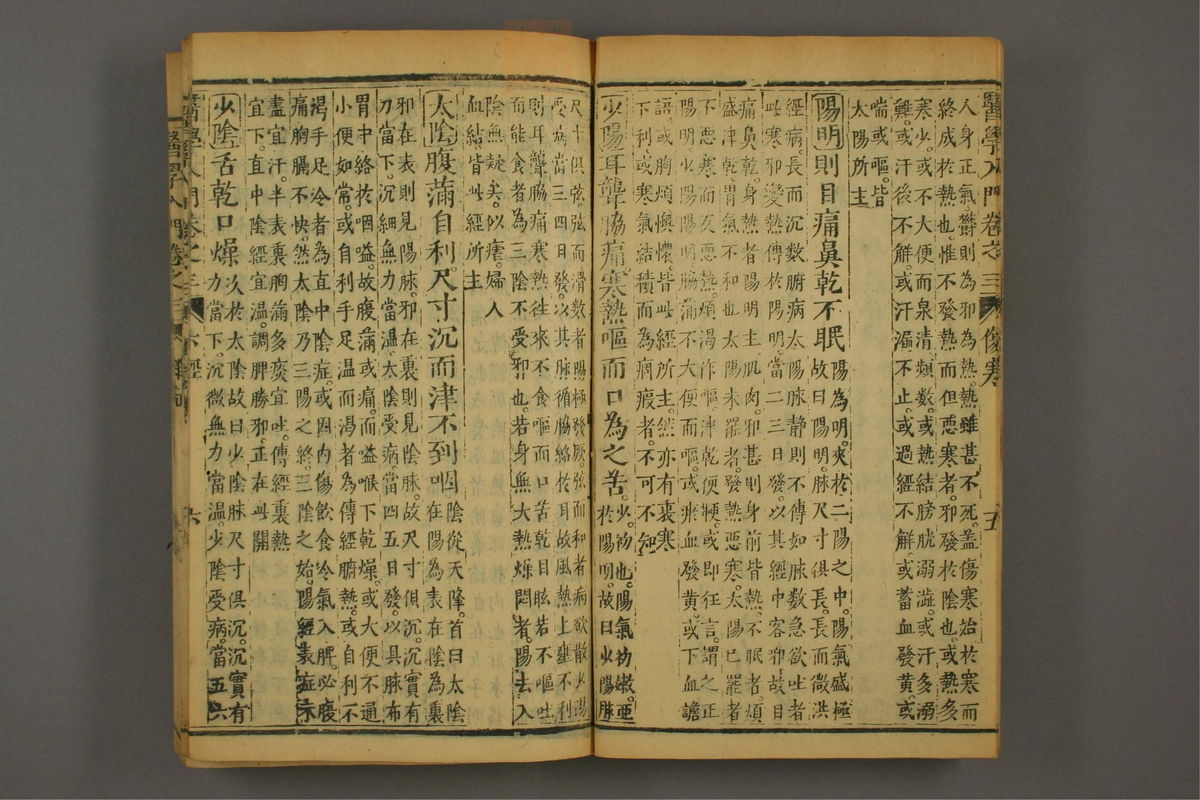 醫學入門卷之三 傷寒 五
人身正氣欝則為邪為熱熱雖甚不死蓋傷寒始於寒而
終成於熱也惟不發熱而但惡寒者邪發於陰也或熱多
寒少或不大便而泉清頻數或熱結膀胱溺澁也或汗多溺
難或汗後不解或汗漏不止或過經不解或蓄血發黄或
喘或嘔皆
太陽所主
陽明則目痛鼻乾不眠故曰陽明脉尺寸俱長長而微洪
陽為明夾於二陽之中陽氣盛極
經病長而沉數腑病太陽脉静則不傳如脉数急欲吐者
此寒邪變熱傳於陽明當二三日發以其經中客邪故目
痛鼻乾身熱陽明主肌肉邪甚則身前皆熱不眠者煩
盛津乾胃氣不和也太陽未罷者發熱惡寒太陽已罷者
不惡寒而反惡熱煩渴作嘔津乾便硬或即狂言謂之正
陽明少陽陽明脇滿不大便而嘔或瘀血發黄或下血譫
語或胸煩懊憹皆此經所主然亦有裏寒
下利或寒氣結積而為痼瘕者不可不知
少陽耳聾脇痛寒熱嘔而口為之苦
少初也陽氣初嫩亞
於陽明故曰少陽脉
尺寸俱弦弦而滑數者陽極發厥弦而和者病欲散少陽
受病當三四日發以其脉循脇絡於耳故風熱上壅不利
則耳聾脇痛寒熱往來不食嘔而口苦乾目眩若不嘔吐
而能食者為三陰不受邪也若身無大熱燥悶者陽去入
陰無疑矣以瘧婦人
血結皆此經所主
太陰腹滿自利尺寸沉而津不到咽
陰從天降首曰太陰
在陽為表在陰為裏
邪在表則見陽脉邪在裏則見陰脉故尺寸俱沉沉實有
力當下沉細無力當温太陰受病當四五日發以其脉布
胃中絡於咽嗌故腹滿或痛而嗌喉下乾燥或大便不通
小便如常或自利手足温而渴者為傳經腑熱或自利不
渴手足冷者為直中陰症或因内傷飲食冷氣入脾必腹
痛胸膈不快然太陰乃三陽之終三陰之始陽經表症未
盡宜汗半表裏胸滿多痰宜吐傳經裏熱
宜下直中陰經宜温調脾勝邪正在此關
少陰舌乾口燥
次於太陰故曰少陰脉尺寸俱沉沉實有
力當下沉微無力當温少陰受病當五六
醫學入門卷之三 六經